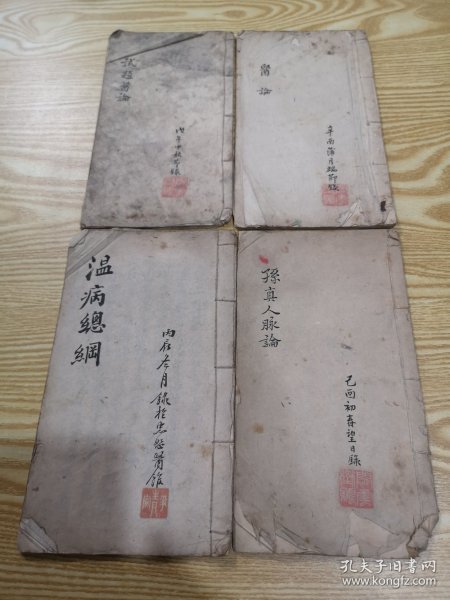 醫論
辛酉蒲月端節錄
試題醫論
戊午中秋節錄
孫真人脈論
己酉初春望日錄
溫病總綱
丙辰冬月錄於忠恕醫館
孔夫子旧书网
www.kongfz.com